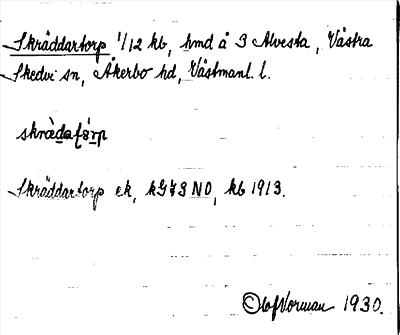 Skräddartorp 1/12 kb, hmd å 3 Alvesta, Västra
Skedvi sn, Åkerbo hd, Västmanl. l.
Skräddartorp ek, kG73 NO, kb 1913.
Olof Vorman 1930.